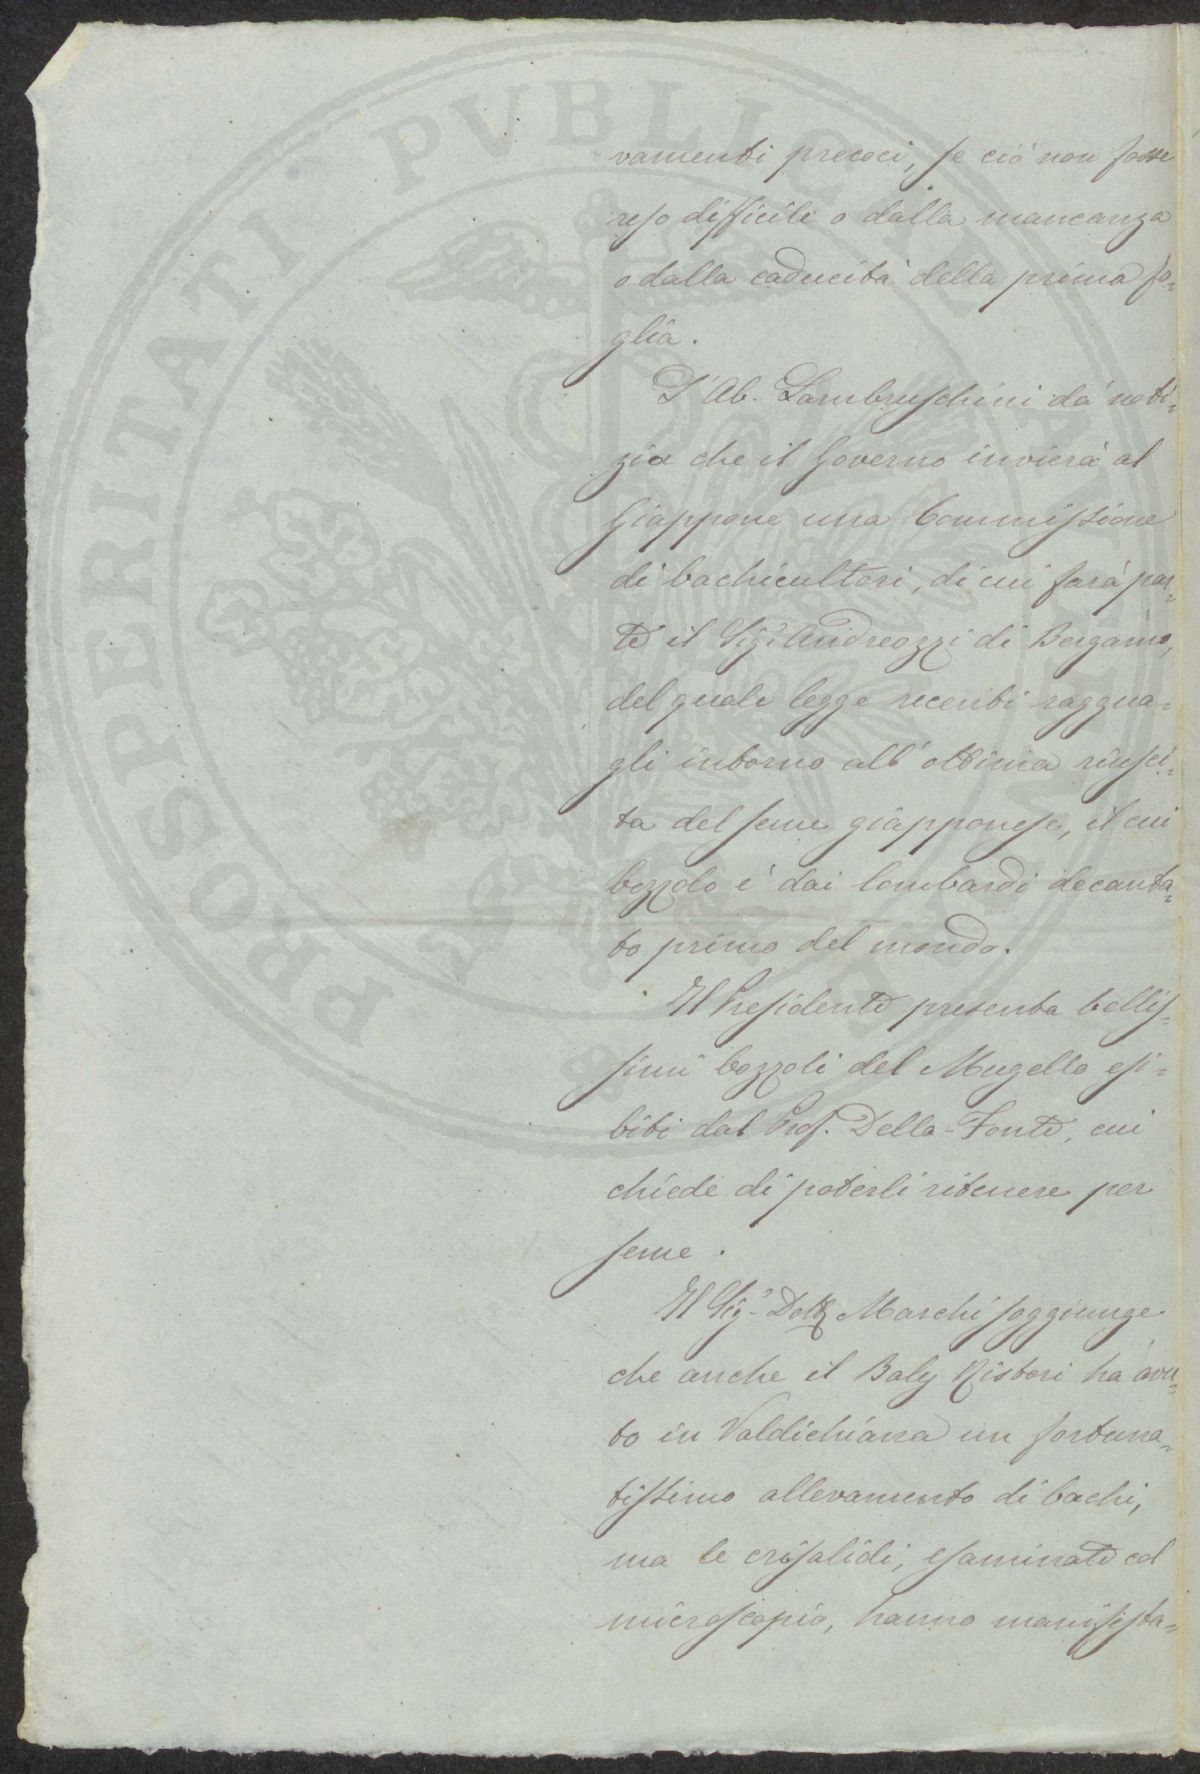 vamenti precoci, se ciò non fosse
reso difficile o dalla mancanza
o dalla caducità della prima fo-
glia.
L'Ab. Lambruschini dà noti-
zia che il Governo invierà al
Giappone una Commissione
di bachicultori, di cui farà par-
te il Sigr Andreozzi di Bergamo,
del quale legge recenti raggua-
gli intorno all'ottima riusci-
ta del seme giapponese, il cui
bozzolo è dai lombardi decanta-
to primo del mondo.
Il Presidente presenta bellis-
simi bozzoli del Mugello esi-
biti dal Prof. Della-Fonte, cui
chiede di poterli ritenere per
seme.
Il Sigr Dott. Marchi soggiunge
che anche il Baly Ristori ha avu-
to in Valdichiana un fortuna-
tissimo allevamento di bachi,
ma le crisalidi, esaminate col
microscopio, hanno manifesta-
PROSPERITATI PVBLICAE